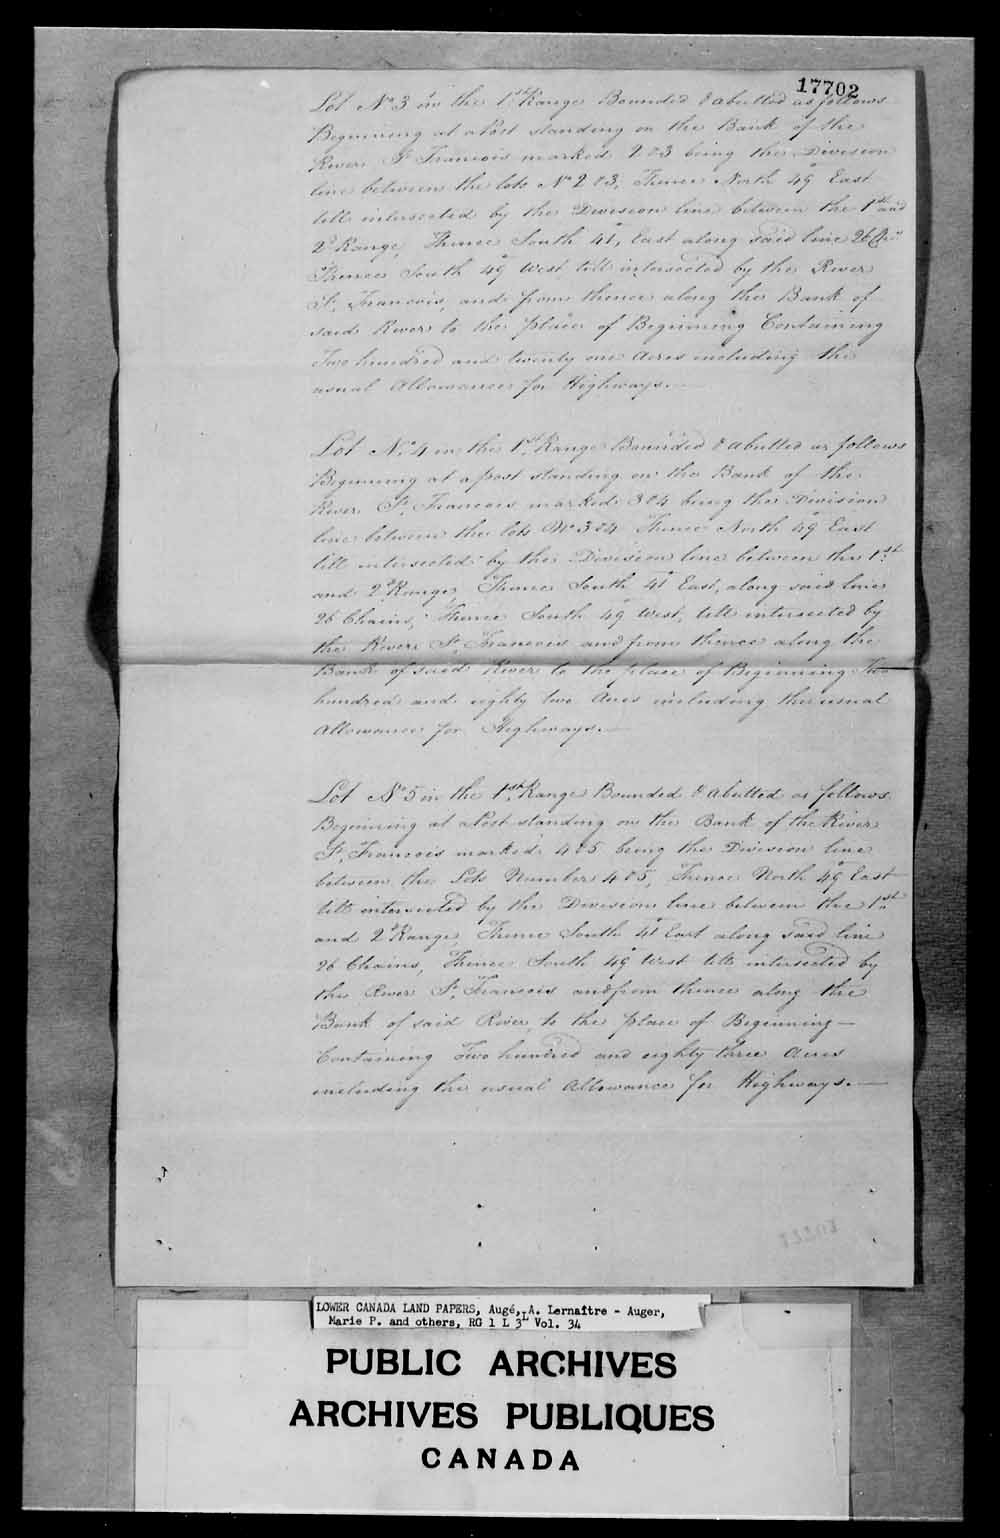 17702
Lot No. 3 in the 1st Range Bounded & abutted as follows
Beginning at a Post standing on the Bank of the
River St. Francois marked 2 & 3 being the Division
line between the lots No 2 & 3, Thence North 49° East
till intersected by the Division line between the 1st and
2d Range, Thence South 41° East along said line 26 Chs
Thence South 49° West till intersected by the River
St. Francois, and from thence along the Bank of
said River to the place of Beginning Containing
Two hundred and twenty one Acres including the
usual Allowance for Highways.—
Lot No. 4 in the 1st Range Bounded & abutted as follows
Beginning at a post standing on the Bank of the
River St. Francois marked 3 & 4 being the Division
line between the lots No 3 & 4 Thence North 49° East
till intersected by the Division line between the 1st
and 2d Range, Thence South 41° East, along said line
26 Chains, Thence South 49° West, till intersected by
the River St. Francois and from thence along the
Bank of said River to the place of Beginning. Two
hundred and eighty two Acres including the usual
Allowance for Highways.—
Lot No 5 in the 1st Range Bounded & abutted as follows
Beginning at a Post standing on the Bank of the River
St. Francois marked 4 & 5 being the Division line
between the Lots Number 4 & 5, Thence North 49° East
till intersected by the Division line between the 1st
and 2d Range, Thence South 41° East along said line
26 Chains, Thence South 49° West till intersected by
the River St. Francois and from thence along the
Bank of said River to the place of Beginning—
Containing Two hundred and eighty three Acres
including the usual Allowance for Highways.—
LOWER CANADA LAND PAPERS, Augé, A. Lernaître - Auger,
Marie P. and others, RG 1 L 3L Vol. 34
PUBLIC ARCHIVES
ARCHIVES PUBLIQUES
CANADA